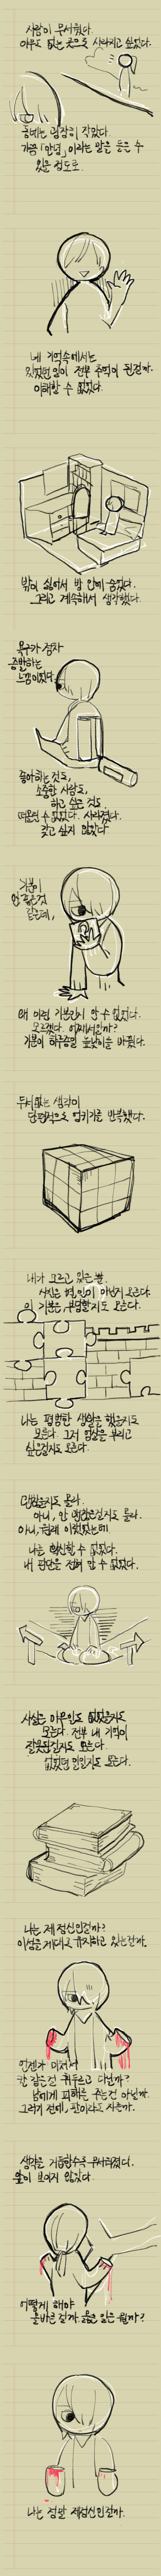 사람이 무서웠다.
아무도 없는 곳으로 사라지고 싶었다.
동네는 굉장히 작았다.
가끔 "안녕" 이라는 말을 듣을 수
있을 정도로.
내 기억속에서는
있었던 일이 전부 추억이 된걸까.
이해할 수 없었다.
밖이 싫어서 방 안에 숨었다.
그리고 계속해서 생각했다.
욕구가 점차
증발하는
느낌이었다.
좋아하는 것도,
소중한 사람도,
하고 싶은 것도
떠올릴 수 없었다. 사라졌다.
갖고 싶지 않았다
기분이
안 좋은것
같은데,
왜 이런 기분인지 알 수 없었다.
모르겠다. 어째서일까?
기분이 하루종일 높낮이를 바꿨다.
두서없는 생각이
단편적으로 얽히기를 반복했다.
내가 모르고 있을 뿐
사실은 별 일이 아닌지 모른다.
이 기분은 부당할지도 모른다.
나는 평범한 생활을 했을지도
모른다. 그저 환상을 부리고
싶은걸지도 모른다.
맞았을지도 몰라.
아니, 안 맞았을지도 몰라.
아니, 원래 이랬었는데
나는 확신할 수 없었다.
내 판단을 전혀 알 수 없었다.
사실은 아무일도 없었을지도
모른다. 전부 내 기억이
잘못된걸지도 모른다.
없었던 일일지도 모른다.
나는 제정신인걸까?
이성을 제대로 유지하고 있는걸까.
언젠가 미쳐서
칼 같은걸 휘두르고 다닐까?
남에게 피해를 주는건 아닐까.
그러기 전에,
생각을 거듭할수록 무서워졌다.
앞이 보이지 않았다.
어떻게 해야
올바른 걸까. 옳은 일은 뭘까?
나는 정말 제정신인걸까.